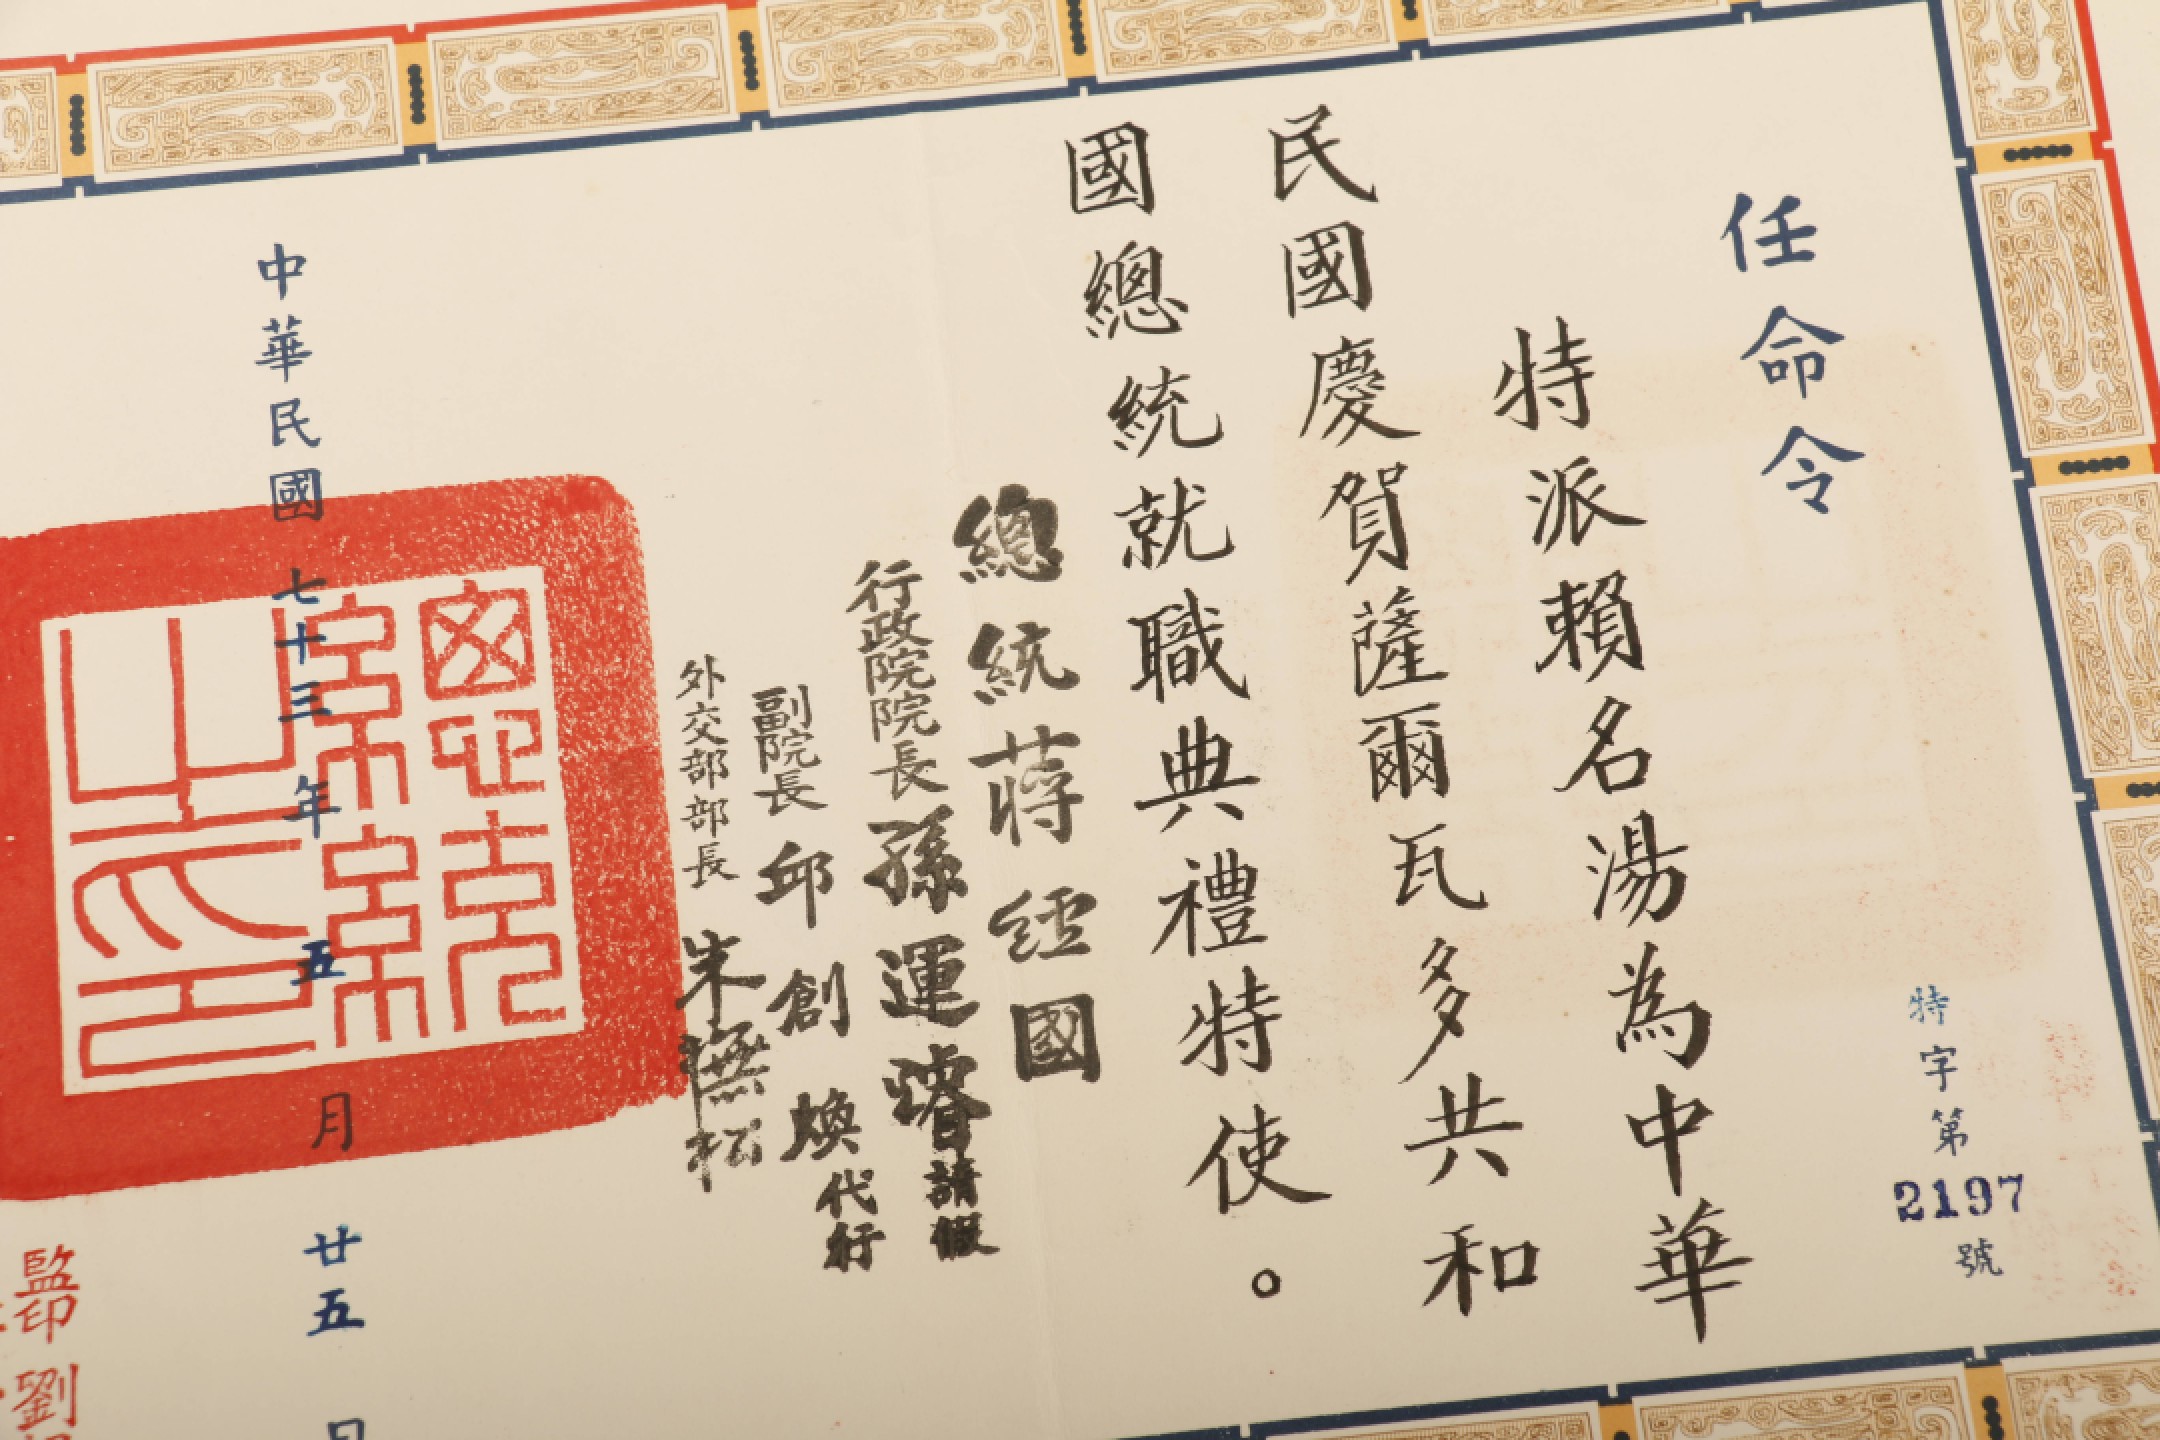 任命令
特字第2197號
特派賴名湯為中華
民國慶賀薩爾瓦多共和
國總統就職典禮特使。
總統蔣經國
行政院院長孫運璿請假
副院長邱創煥代行
外交部部長朱撫松
中華民國七十三年五月廿五日
總統
之印
監印劉